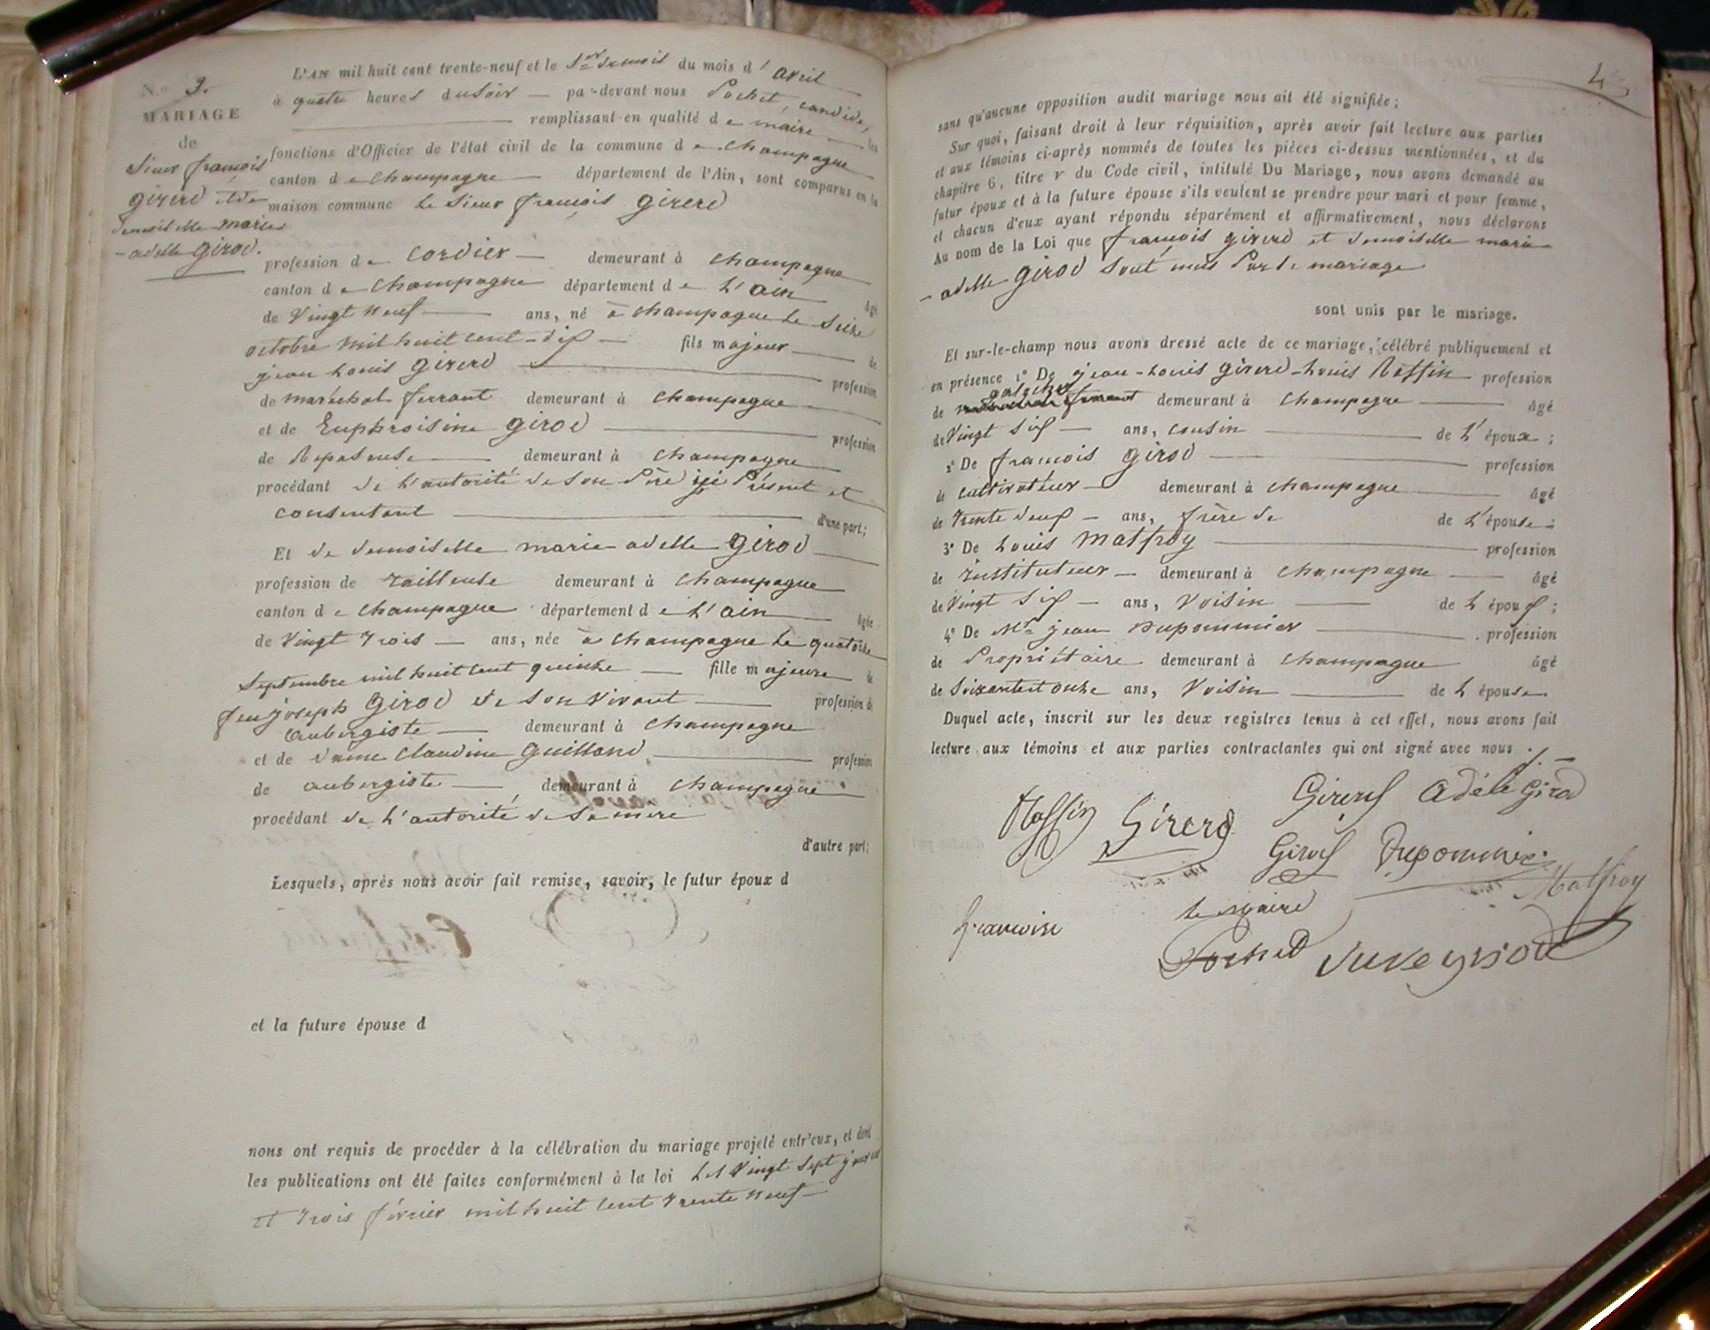 N.o 3.
MARIAGE
de
Sieur françois
girerd et de
demoiselle marie
-adelle girod.
L'AN mil huit cent trente-neuf et le 1er du mois d'avril
à quatre heures du soir — par-devant nous Pochet, candide,
remplissant en qualité de maire — les
fonctions d'Officier de l'état civil de la commune de champagne
canton de champagne — département de l'Ain, sont comparus en la
maison commune le sieur françois girerd
profession de cordier — demeurant à champagne
canton de champagne département de l'ain âgé
de vingt neuf — ans, né à champagne le seize
octobre mil huit cent-dix — fils majeur — de
jean louis girerd — profession
de maréchal ferrant demeurant à champagne
et de Euphroisine girod — profession
de Repasseuse — demeurant à champagne
procédant de l'autorité de son père ici présent et
consentant — d'une part;
Et de demoiselle marie adelle girod
profession de tailleuse demeurant à champagne
canton de champagne département de l'ain âgée
de vingt trois — ans, née à champagne le quatorze
septembre mil huit cent quinze — fille majeure de
feu joseph girod de son vivant — profession de
aubergiste — demeurant à champagne
et de dame claudine guilland — profession
de aubergiste — demeurant à champagne
procédant de l'autorité de sa mère
d'autre part;
Lesquels, après nous avoir fait remise, savoir, le futur époux d
et la future épouse d
nous ont requis de procéder à la célébration du mariage projeté entr'eux, et dont
les publications ont été faites conformément à la loi les vingt sept janvier
et trois février mil huit cent trente neuf —
4
sans qu'aucune opposition audit mariage nous ait été signifiée;
Sur quoi, faisant droit à leur réquisition, après avoir fait lecture aux parties
et aux témoins ci-après nommés de toutes les pièces ci-dessus mentionnées, et du
chapitre 6, titre v du Code civil, intitulé Du Mariage, nous avons demandé au
futur époux et à la future épouse s'ils veulent se prendre pour mari et pour femme,
et chacun d'eux ayant répondu séparément et affirmativement, nous déclarons
Au nom de la Loi que françois girerd et demoiselle marie
-adelle girod sont unis par le mariage
sont unis par le mariage.
Et sur-le-champ nous avons dressé acte de ce mariage, célébré publiquement et
en présence 1° De jean-louis girerd-louis Roffin profession
de demeurant à champagne — âgé
de vingt six — ans, cousin — de l'époux;
2° De françois girod — profession
de cultivateur — demeurant à champagne — âgé
de trente deux — ans, frère de de l'épouse;
3° De louis matfroy — profession
de instituteur — demeurant à champagne — âgé
de vingt six — ans, voisin — de l'époux;
4° De Mr jean dupommier — profession
de propriétaire demeurant à champagne âgé
de soixante et onze ans, voisin — de l'épouse
Duquel acte, inscrit sur les deux registres tenus à cet effet, nous avons fait
lecture aux témoins et aux parties contractantes qui ont signé avec nous .
Girerd Adéle Girod
Roffin Girerd
Girod Dupommier
Matfroy
le maire
francoise
Pochet